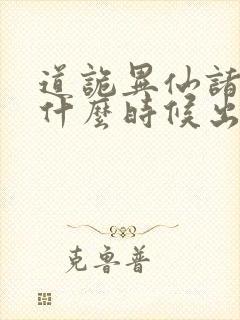 道詭異仙諸
什麼時候出
克魯普